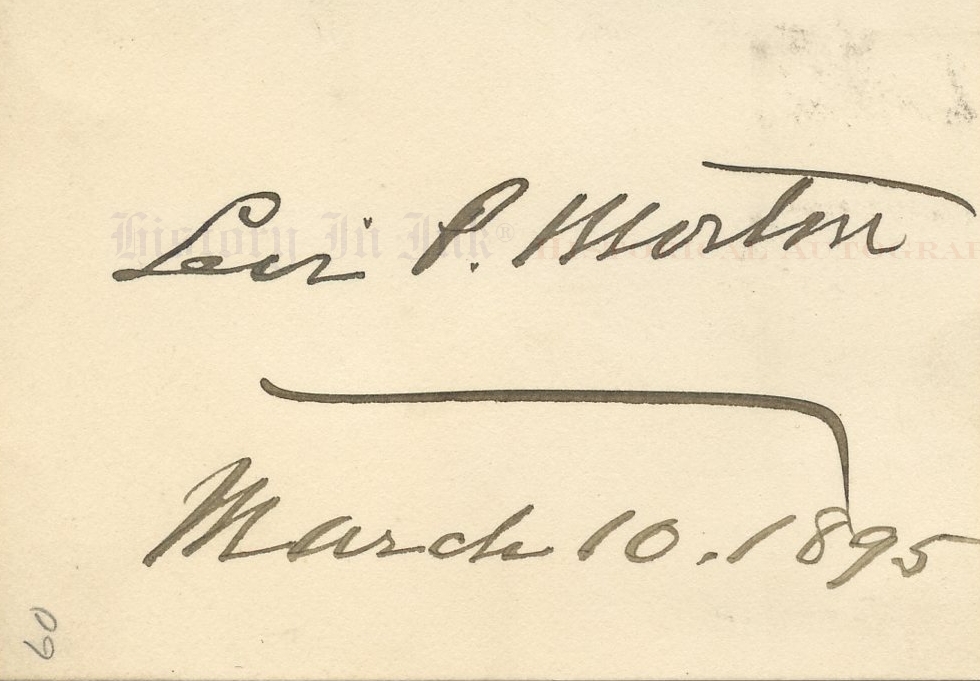 Levi P. Morton
History In Ink® HISTORICAL AUTOGRAP
March 10. 1895
60